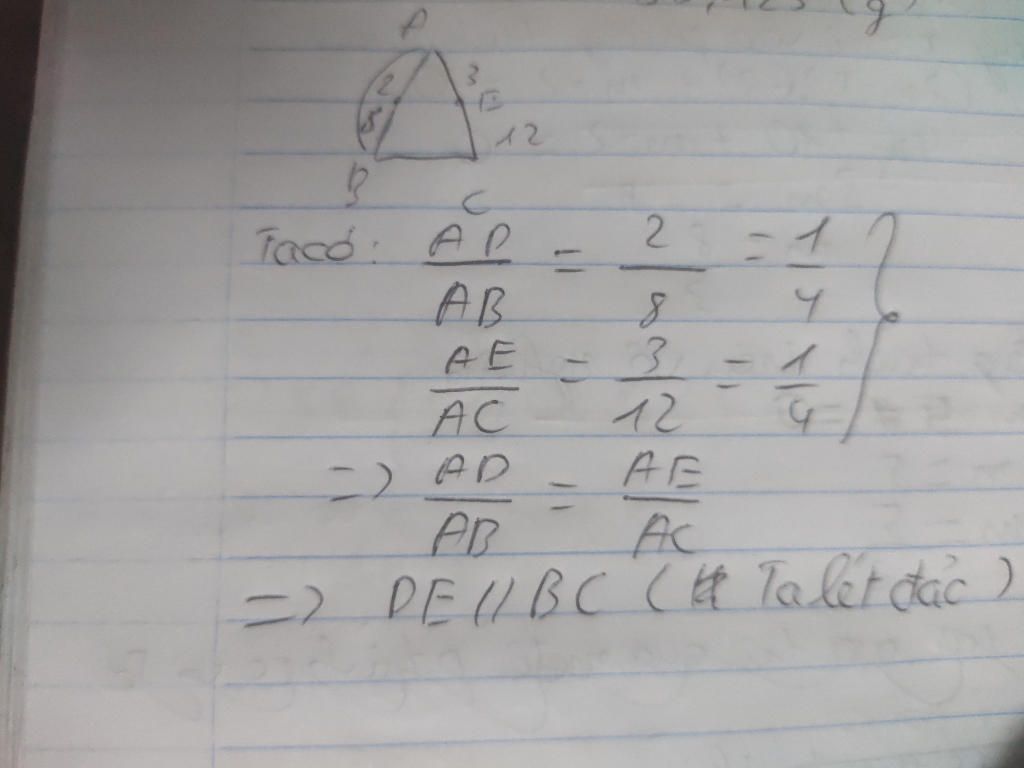 (g)
A
2
3
E
8
12
B
C
Ta có: AD/AB = 2/8 = 1/4 }
AE/AC = 3/12 = 1/4
=> AD/AB = AE/AC
=> DE // BC (Talét đảo)